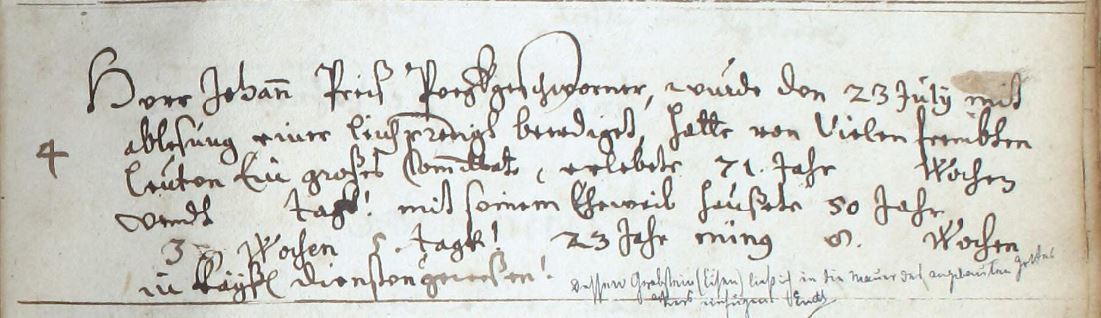 4
Herr Johann Preiß Bergkgeschworner, wurde den 23 July mit
ablesung einer leichpredigt beerdiget, hatte von Vielen frembten
leuten Ein großes Comittat, erlebete 71. Jahr Wochen
undt Tagk! mit seinem Eheweib haußete 50 Jahr
3 Wochen 5. Tagk! 23 Jahr 8. Wochen
in Kayßl diensten gewesen!
dessen Grabstein (Eisen) ließ ich in die Mauer des angebauten Gottes
ackers einfügen